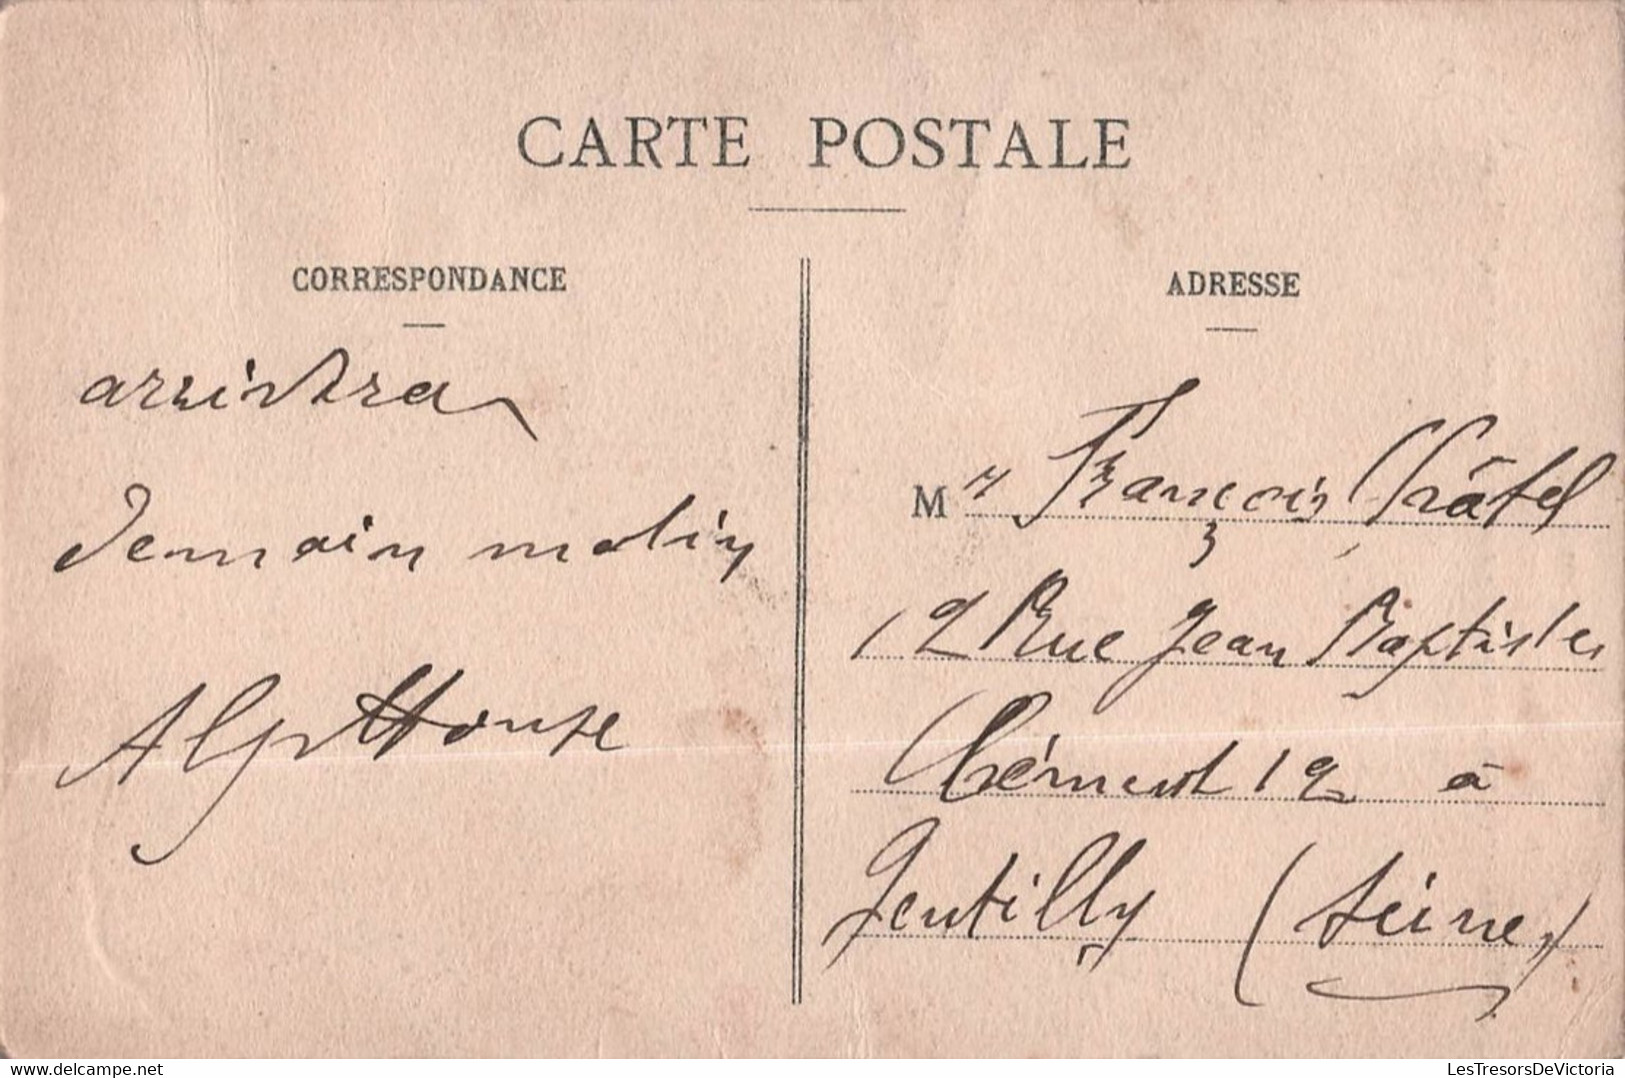 CARTE POSTALE
CORRESPONDANCE
arrivera
Demain matin
Alphonse
ADRESSE
Mr François Châtel
12 Rue Jean Baptiste
Clément 12 à
Gentilly (Seine)
delcampe.net
LesTresorsDeVictoria